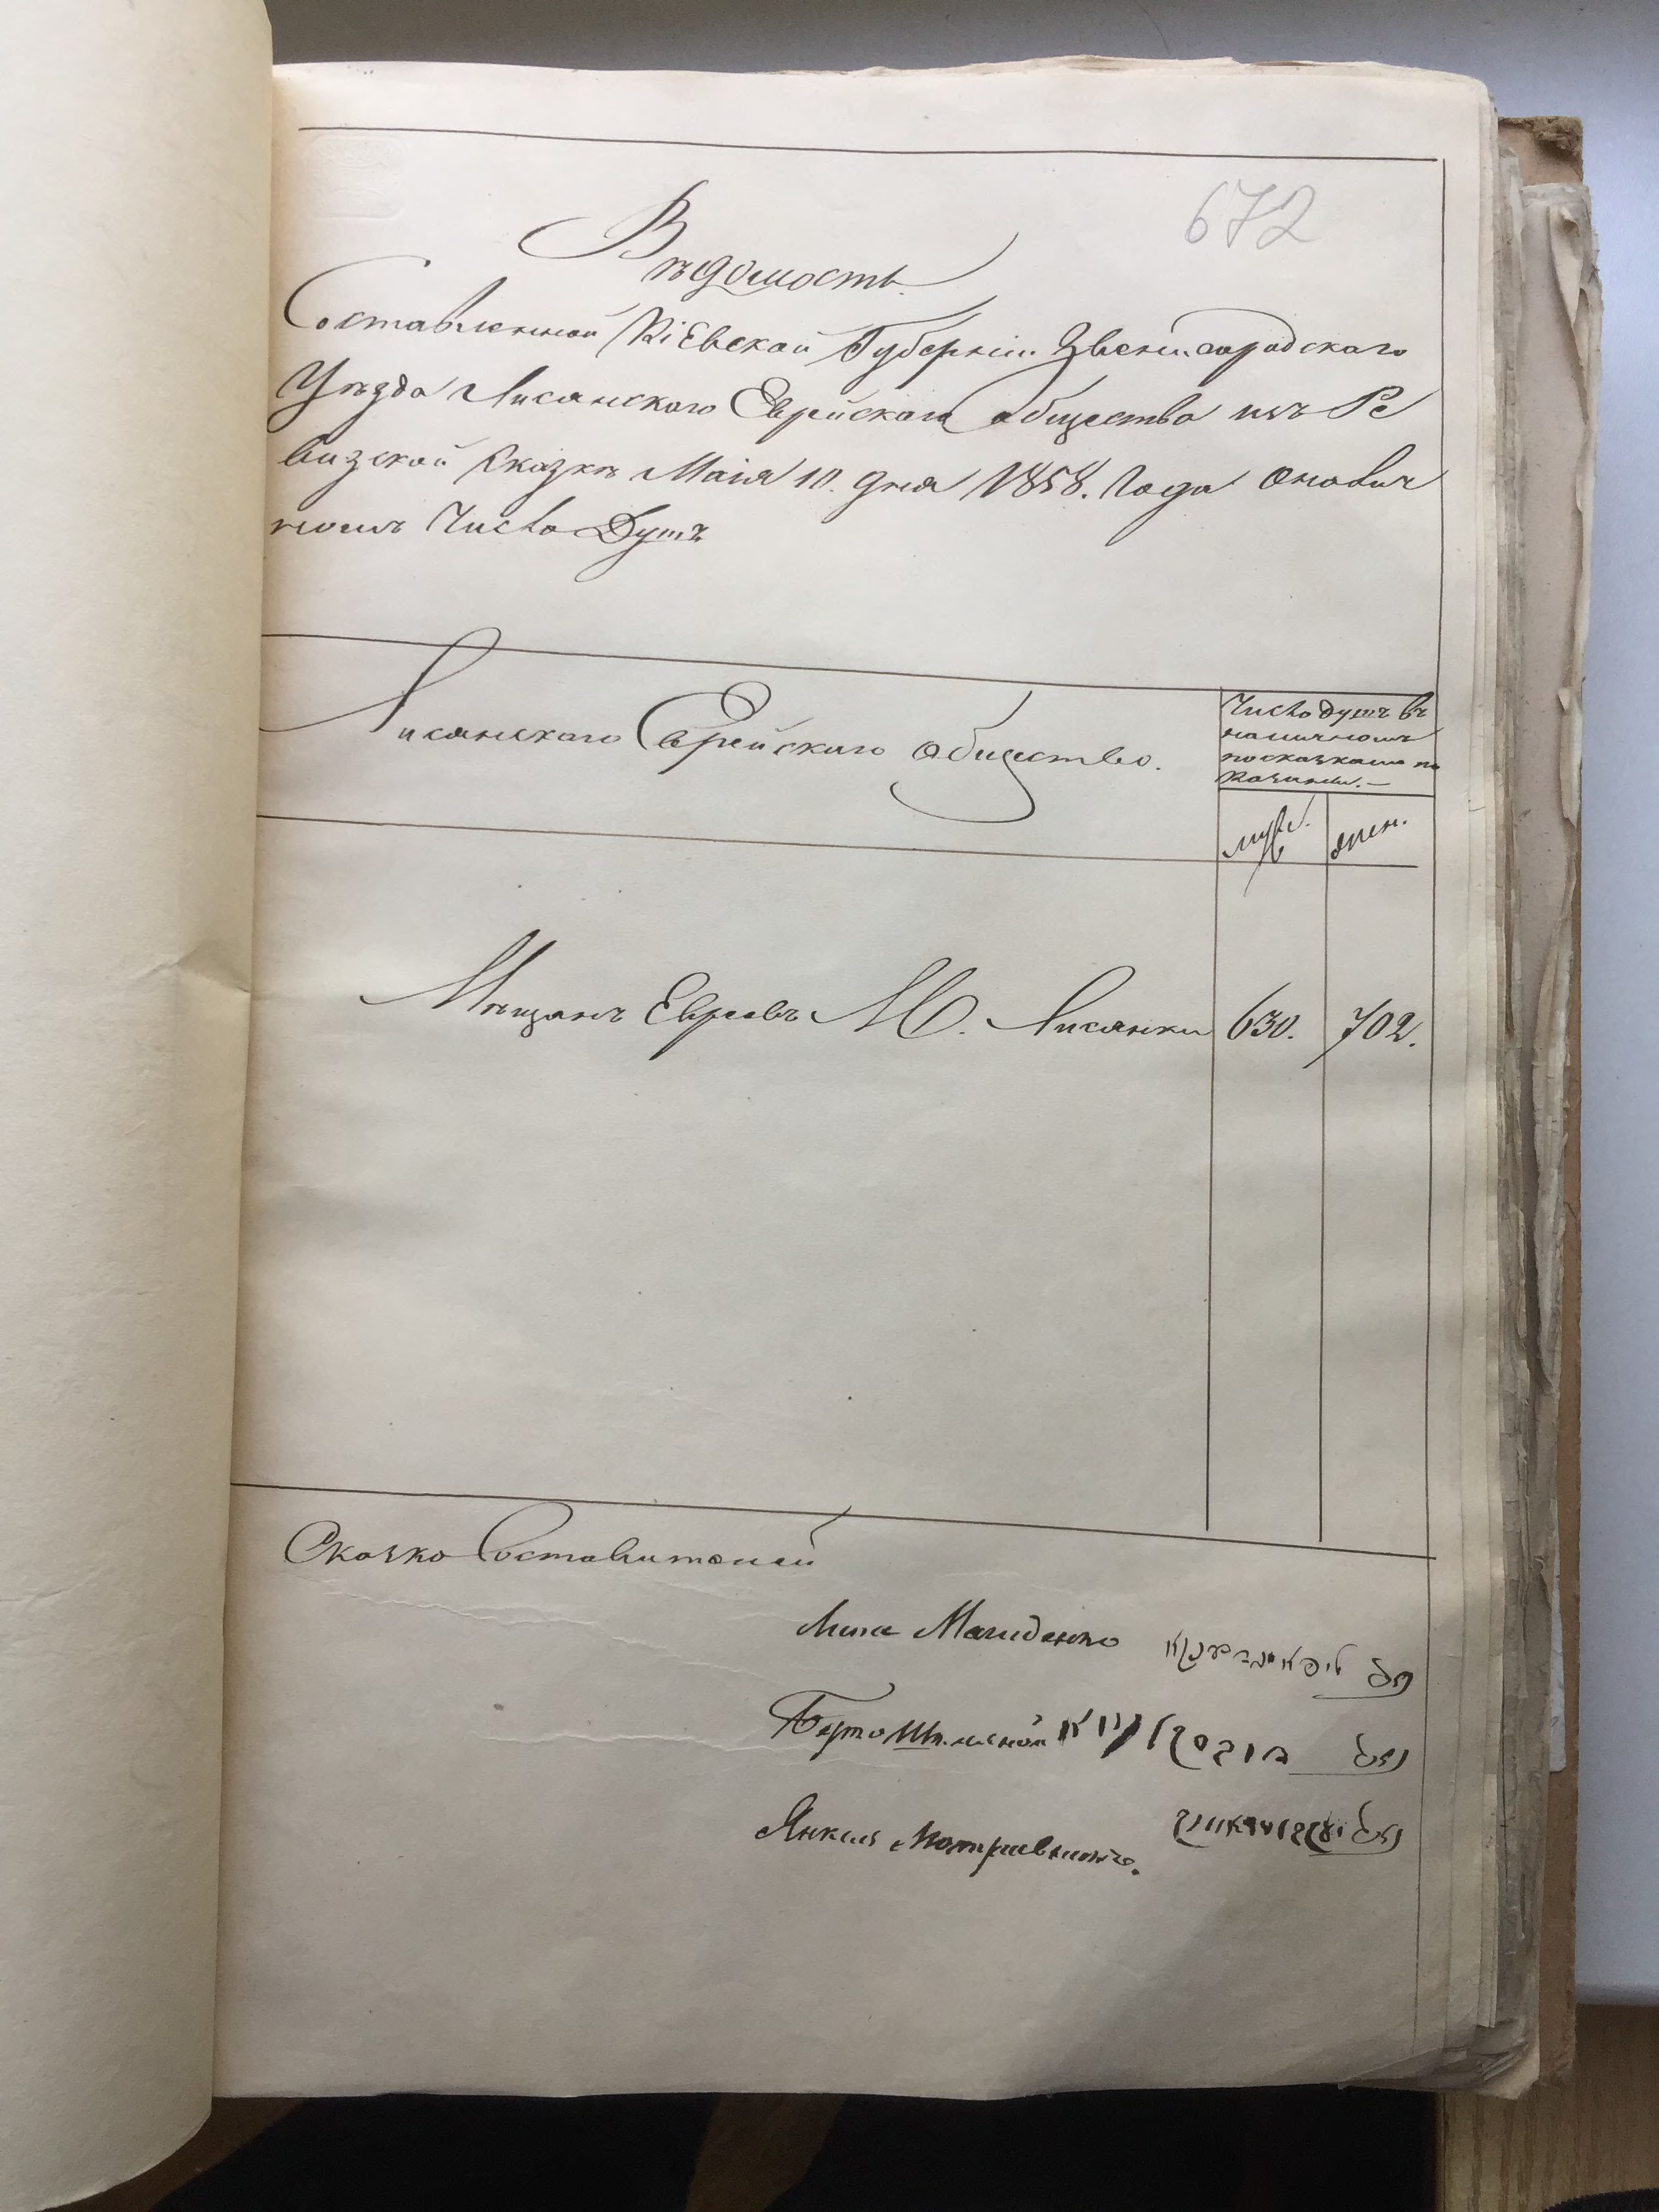 672
Вѣдомость
Составленной Кіевской Губерніи Звенигородскаго
Уѣзда Лисянскаго Еврейскаго общества изъ Ре
визской Сказки Маія 10. дня 1858. Года онолич
номъ Число Душъ
Лисянскаго Еврейскаго общество.
Число душъ въ
наличномъ
по сказкамъ по
казанны.—
муж. жен.
Мѣщанъ Евреевъ М. Лисянки 630. 702.
Сказко Составителей
Липа Магиденко
Янкель